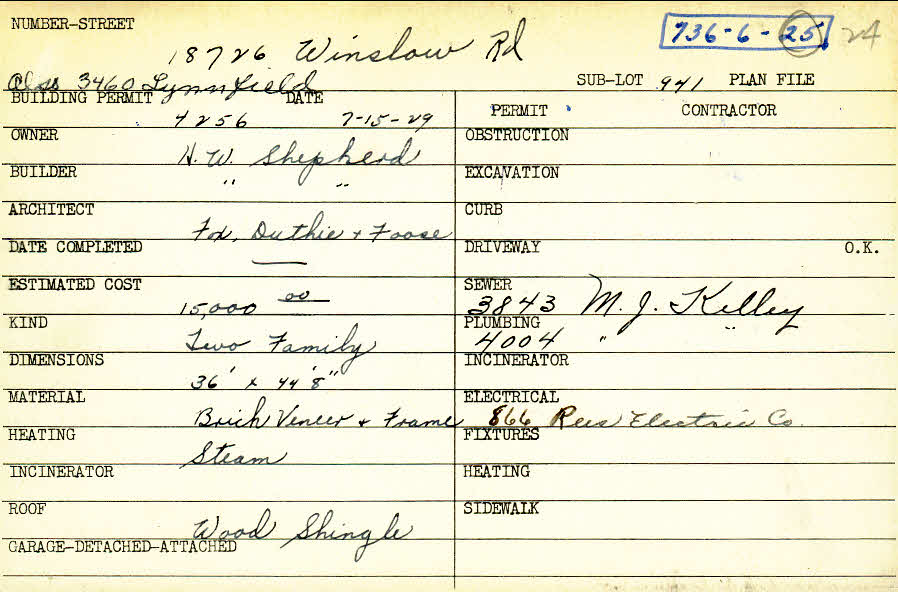 NUMBER-STREET 18726 Winslow Rd 736-6-25 24
Also 3460 Lynnfield SUB-LOT 941 PLAN FILE
BUILDING PERMIT 4256 DATE 7-15-29 PERMIT CONTRACTOR
OWNER H. W. Shepherd OBSTRUCTION
BUILDER " " EXCAVATION
ARCHITECT Fox, Duthie + Foose CURB
DATE COMPLETED — DRIVEWAY O.K.
ESTIMATED COST 15,000 00 SEWER 3843 M. J. Kelley
KIND Two Family PLUMBING 4004 " "
DIMENSIONS 36' x 44' 8" INCINERATOR
MATERIAL Brick Veneer + Frame ELECTRICAL 866 Rees Electric Co.
HEATING Steam FIXTURES
INCINERATOR HEATING
ROOF Wood Shingle SIDEWALK
GARAGE-DETACHED-ATTACHED